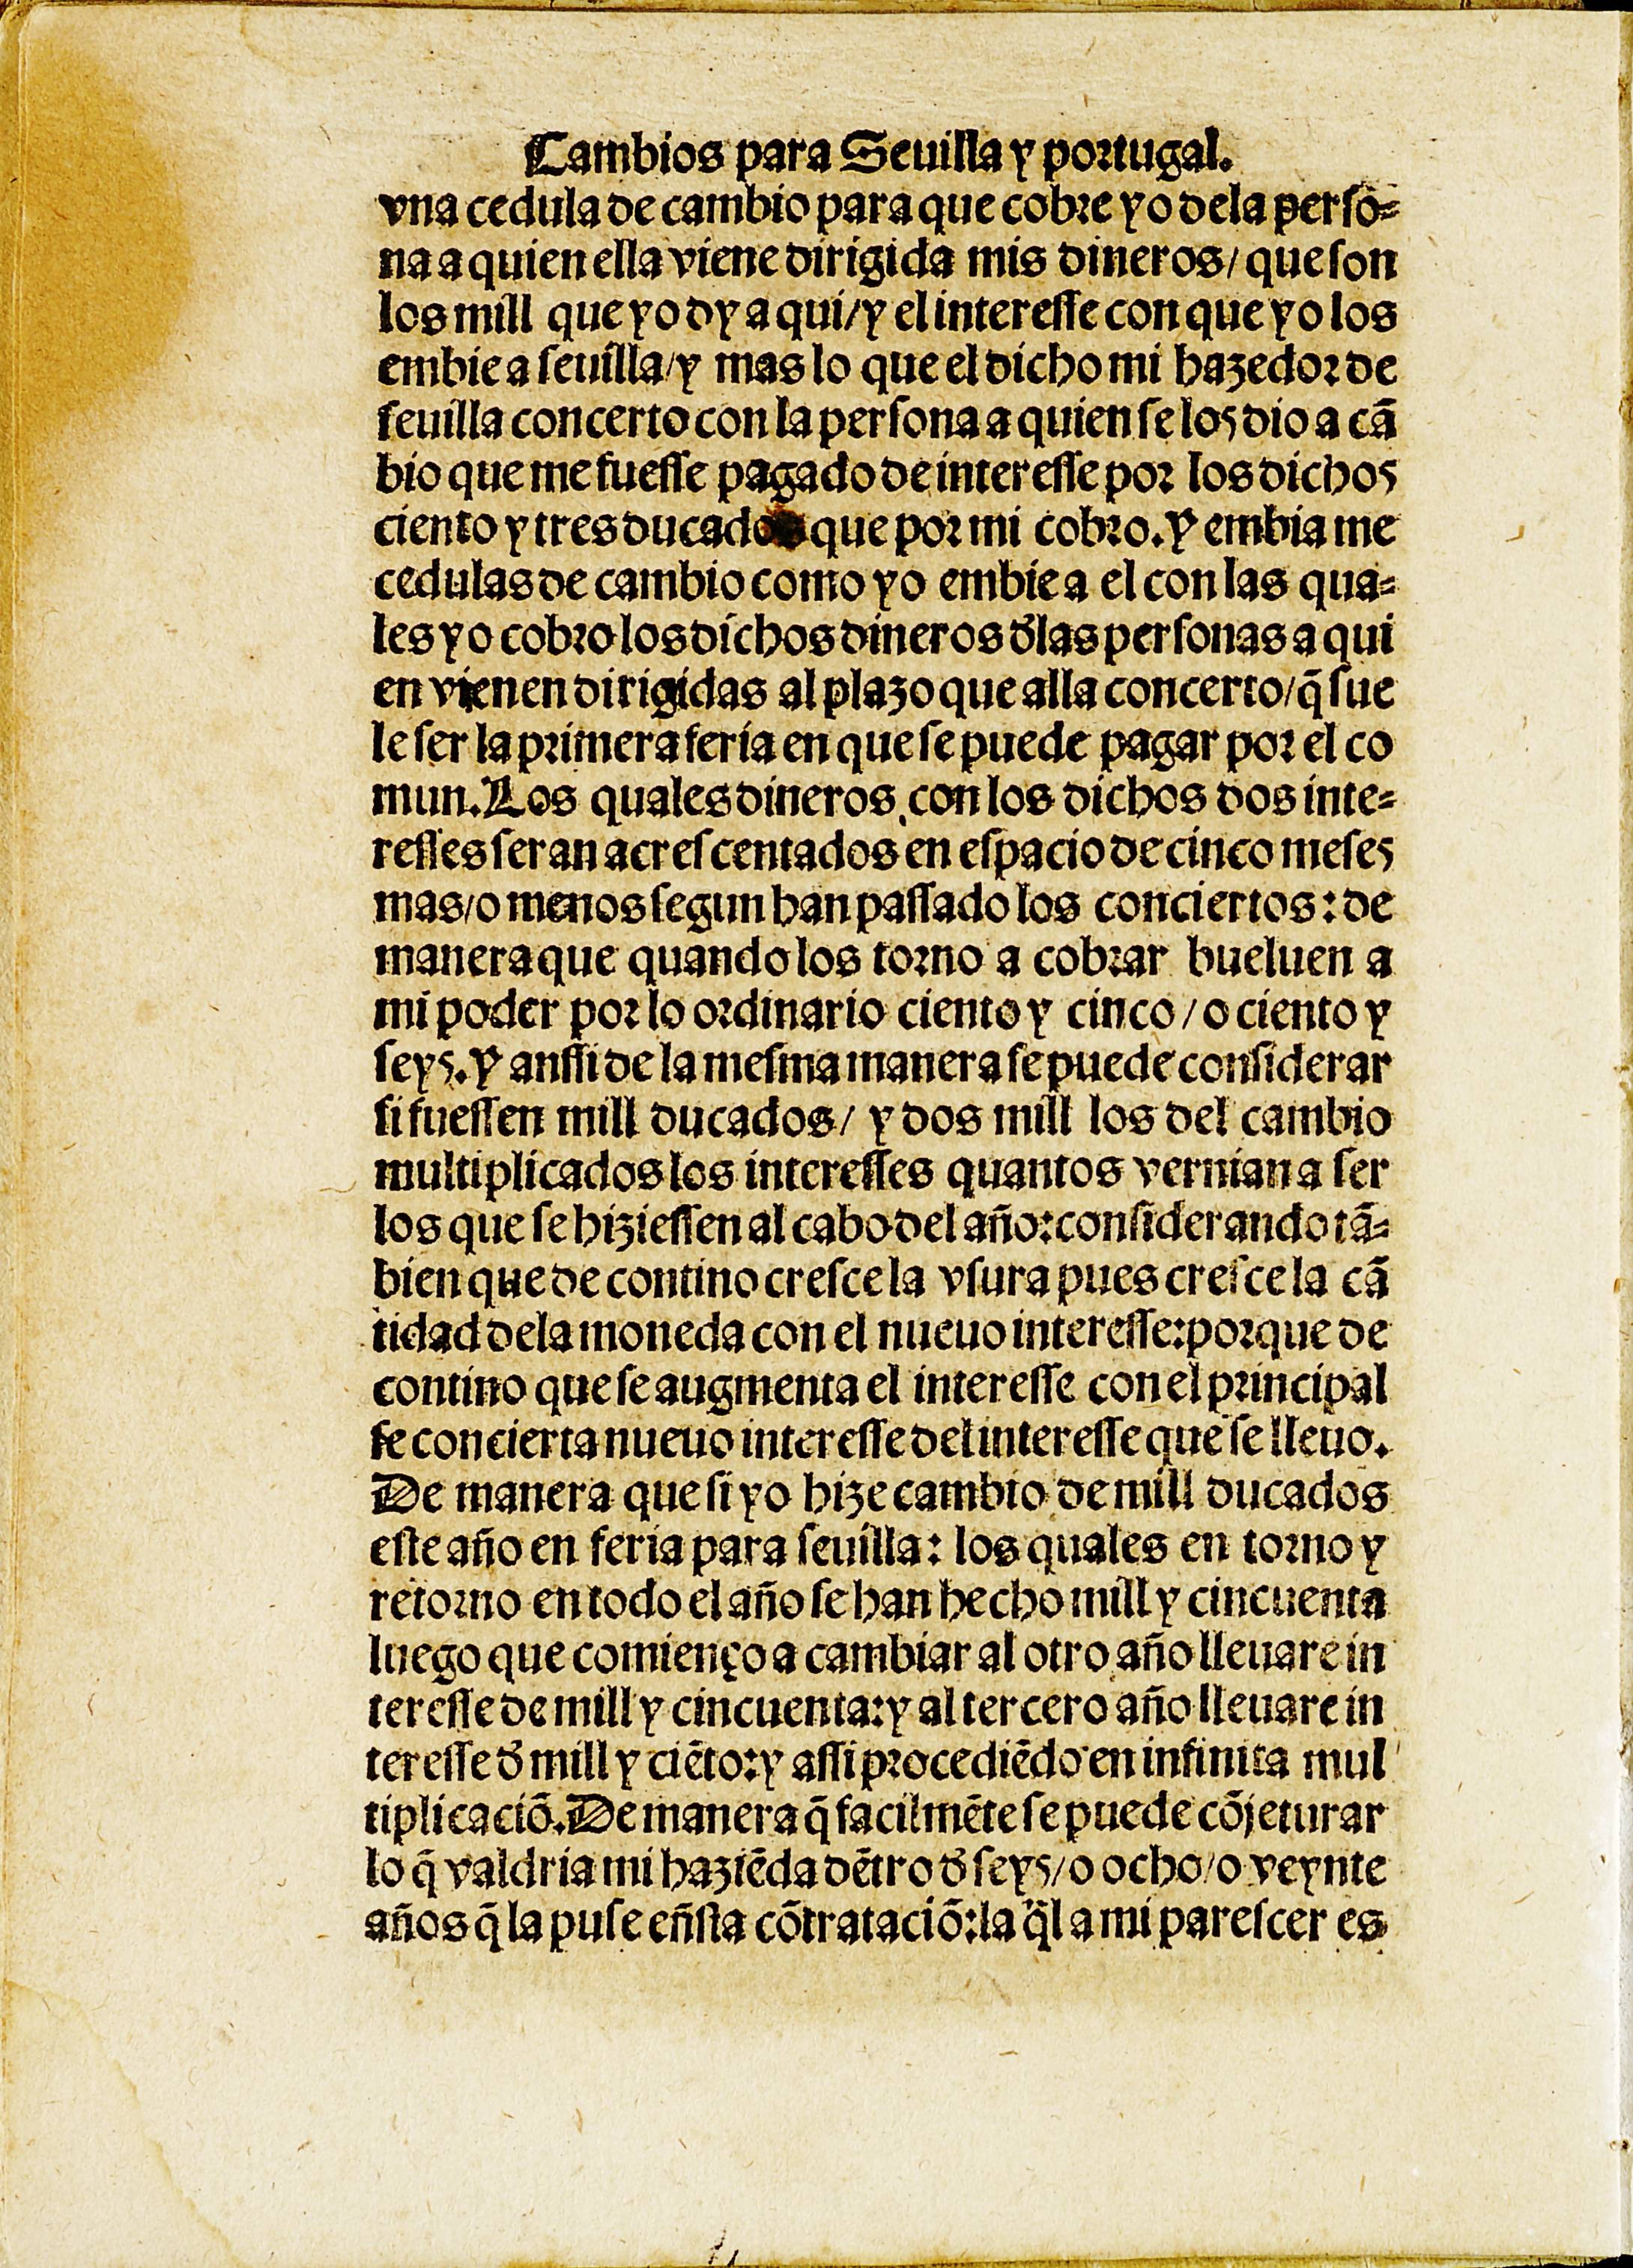 Cambios para Seuilla y portugal.
vna cedula de cambio para que cobre yo dela perso=
na a quien ella viene dirigida mis dineros/ que son
los mill que yo dy a qui/y el interesse con que yo los
embie a seuilla/y mas lo que el dicho mi hazedor de
seuilla concerto con la persona a quien se los dio a cā
bio que me fuesse pagado de interesse por los dichos
ciento y tres ducados que por mi cobro. Y embia me
cedulas de cambio como yo embie a el con las qua=
les yo cobro los dichos dineros d̄las personas a qui
en vienen dirigidas al plazo que alla concerto/q̄ sue
le ser la primera feria en que se puede pagar por el co
mun. Los quales dineros con los dichos dos inte=
resses seran acrescentados en espacio de cinco meses
mas/o menos segun han passado los conciertos: de
manera que quando los torno a cobrar bueluen a
mi poder por lo ordinario ciento y cinco/o ciento y
seys. Y anssi de la mesma manera se puede considerar
si fuessen mill ducados/ y dos mill los del cambio
multiplicados los interesses quantos vernian a ser
los que se hiziessen al cabo del año: considerando tā=
bien que de contino cresce la vsura pues cresce la cā
tidad dela moneda con el nueuo interesse: porque de
contino que se augmenta el interesse con el principal
se concierta nueuo interesse del interesse que se lleuo.
De manera que si yo hize cambio de mill ducados
este año en feria para seuilla: los quales en torno y
retorno en todo el año se han hecho mill y cincuenta
luego que comienço a cambiar al otro año lleuare in
teresse de mill y cincuenta: y al tercero año lleuare in
teresse d̄ mill y ciēto: y assi procediēdo en infinita mul
tiplicaciō. De manera q̄ facilmēte se puede cōjeturar
lo q̄ valdria mi haziēda dētro d̄ seys/o ocho/o veynte
años q̄ la puse en̄sta cōtrataciō: la q̄l a mi parescer es